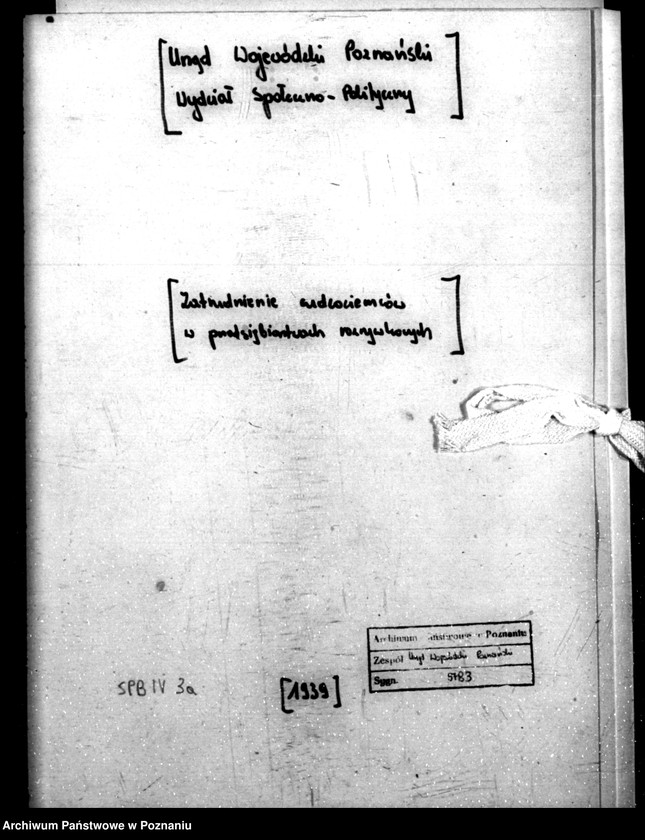 [Urząd Wojewódzki Poznański
Wydział Społeczno-Polityczny]
[Zatrudnienie cudzoziemców
w przedsiębiorstwach rozrywkowych]
Archiwum Państwowe w Poznaniu
Zespół Urząd Wojewódzki Poznański
Sygn. 5783
SPB IV 3a
[1939]
Archiwum Państwowe w Poznaniu